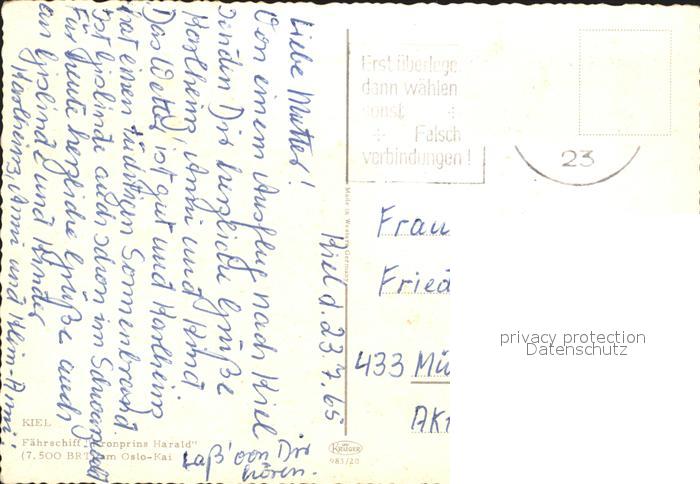 Kiel d. 23.7.65
Liebe Mutter!
Von einem Ausflug nach Kiel
senden Dir herzliche Grüße
Karlheinz, Anni und Kind
Das Wetter ist gut und Karlheinz
hat einen tüchtigen Sonnenbrand
ist Gislinde auch schon im Schwarzwald
Für heute herzliche Grüße auch
an Gislinde und Kinder
Karlheinz, Anni und Klein Anni
Laß' von Dir
hören.
KIEL
Fährschiff „Kronprins Harald"
(7.500 BRT) am Oslo-Kai
Made in Western Germany
KRÜGER
983/20
Erst überlege
dann wählen
sonst
Falsch
verbindungen!
23
Frau
Fried
433 Mü
privacy protection
Datenschutz